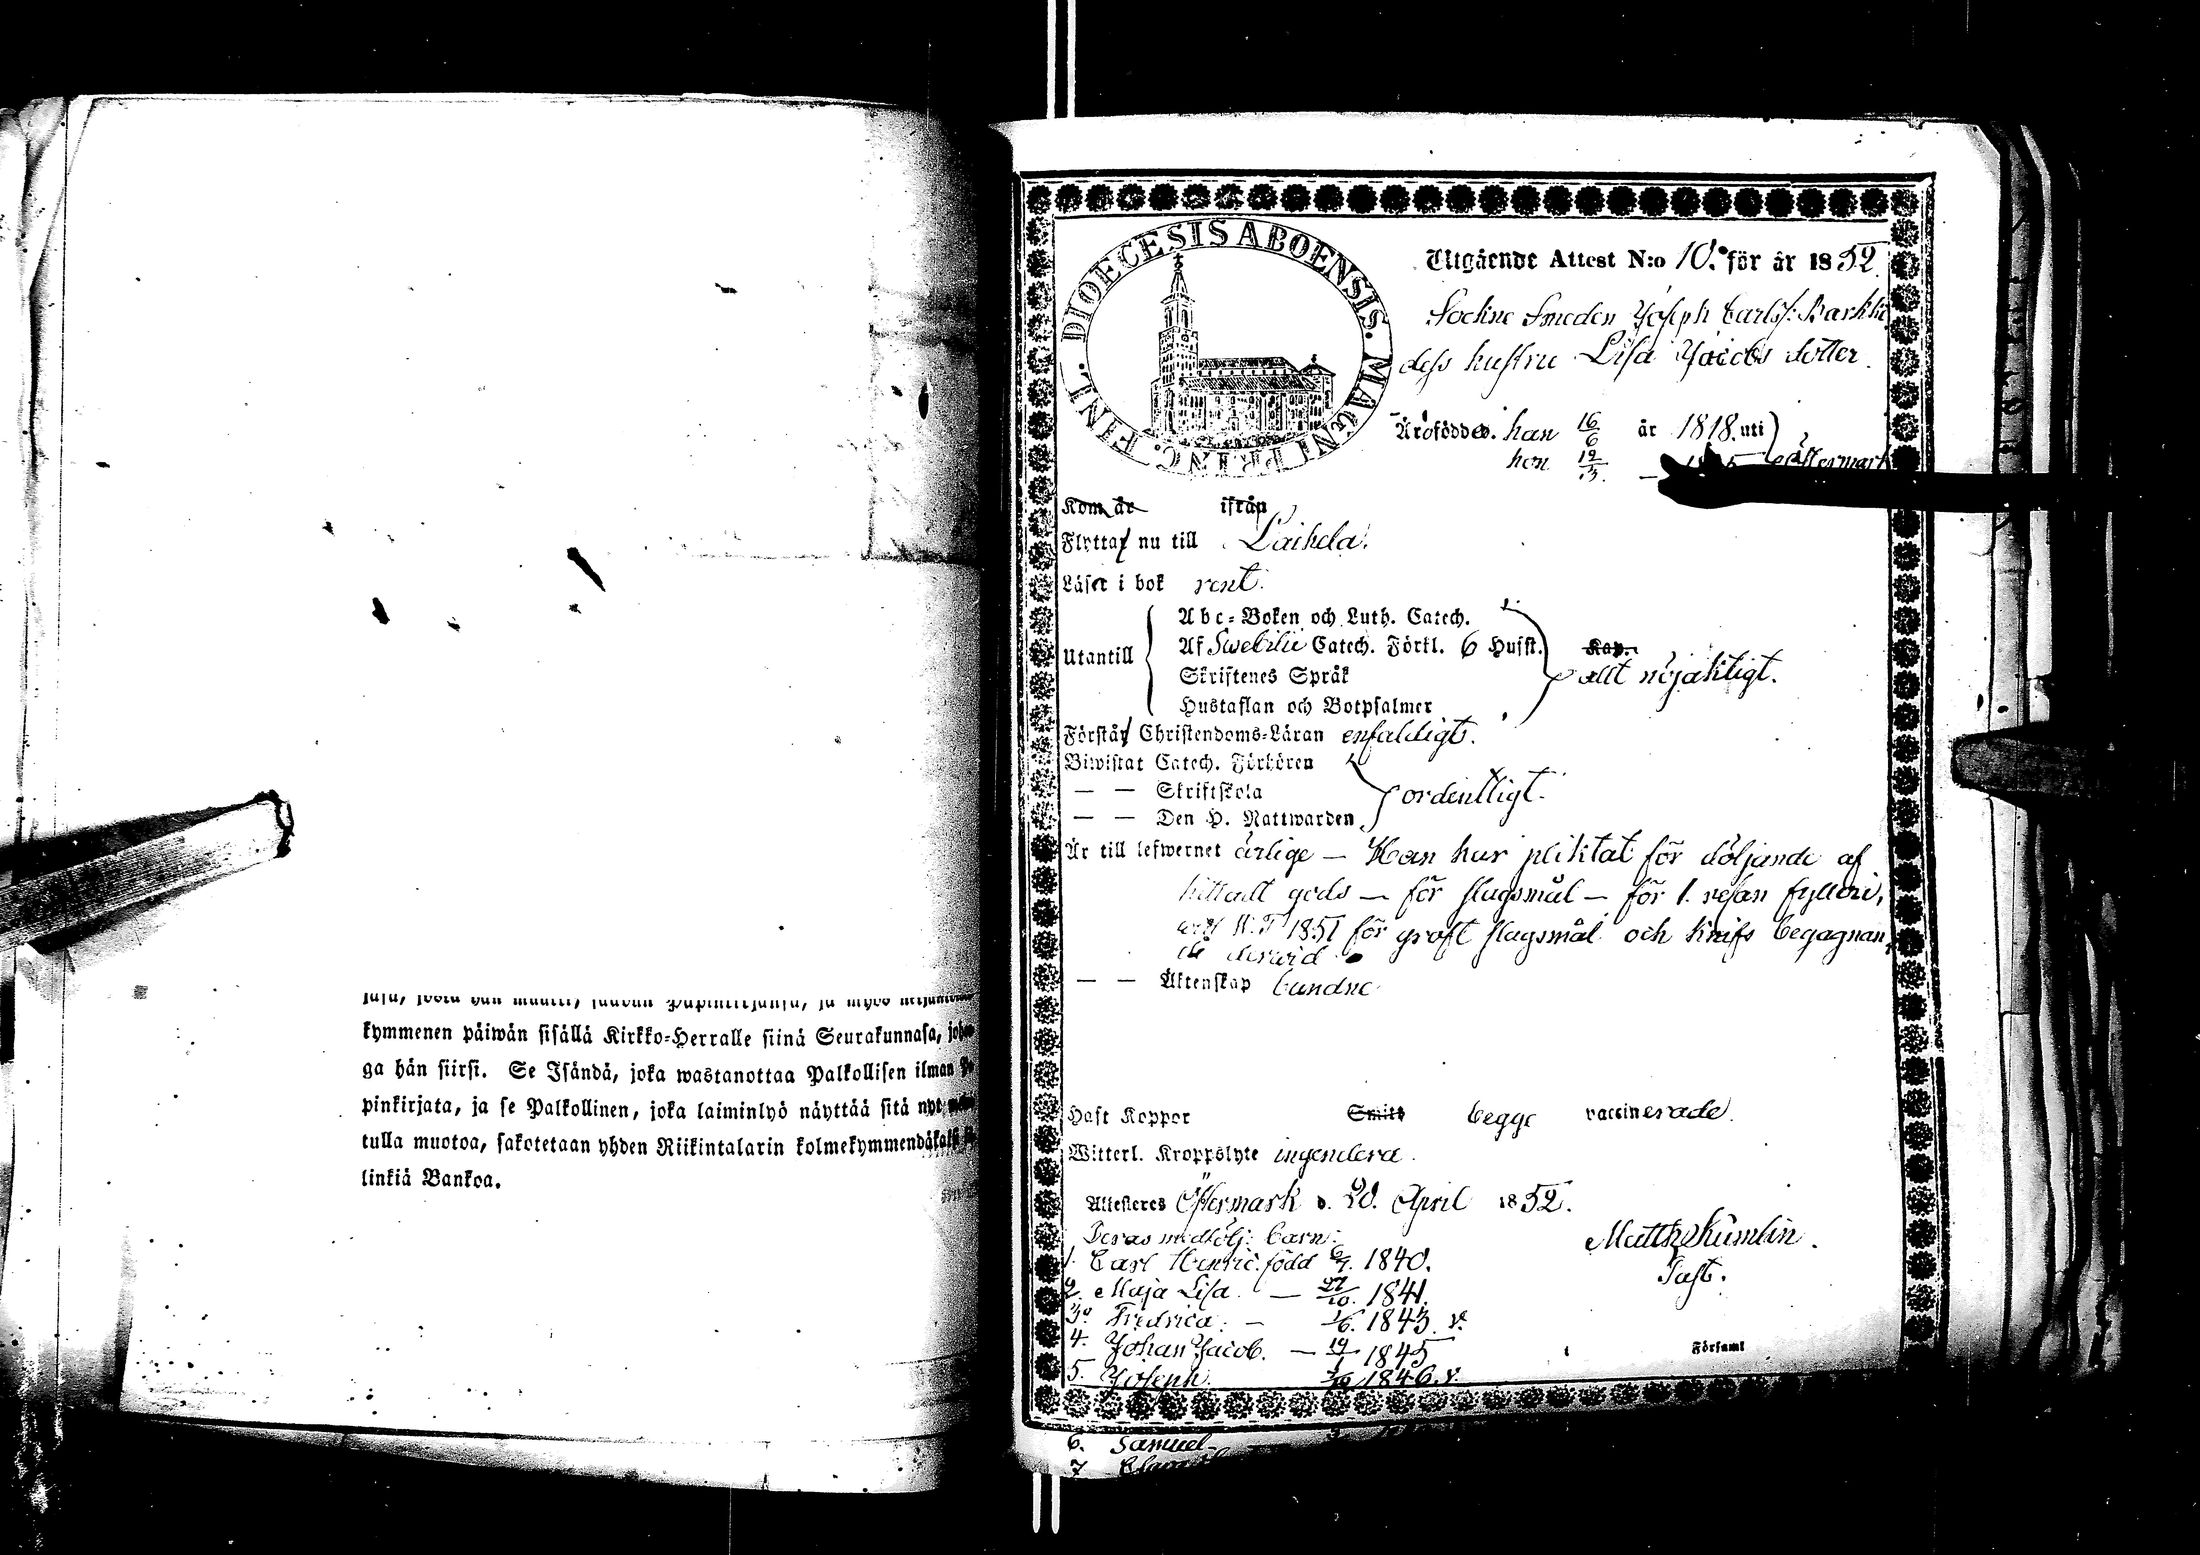 kymmenen päiwän sisällä Kirkko-Herralle siinä Seurakunnasa,
ga hän siirsi. Se Isändä, joka wastanottaa Palkollisen ilman
pinkirjata, ja se Palkollinen, joka laiminlyö näyttää sitä nyt
tulla muotoa, sakotetaan yhden Riikintalarin kolmekymmendä
linkiä Bankoa.
DIOECESIS ABOENSIS. MAGNI PRINC. FINL.
Utgående Attest N:o 10. för år 1852.
Sockne Smeden Joseph Carlss: Barkk
dess hustru Lisa Jacobs dotter.
Äro födde. han 16/6 år 1818. uti
hon 19/3. — Östermark
Kom år ifrån
Flytta nu till Laihela.
Läser i bok rent.
Abc-Boken och Luth. Catech.
Utantill Af Swebilii Catech. Förkl. 6 Hufst. Kap.
allt nöjaktigt.
Skriftenes Språk
Hustaflan och Botpsalmer
Förstår Christendoms-Läran enfaldigt.
Biwistat Catech. Förhören
— — Skriftskola ordentligt.
— — Den H. Nattwarden
Är till lefwernet ärlige — Han har pliktat för döljande af
hittadt gods — för slagsmål — för 1. resan fylleri,
W.T 1851 för groft slagsmål och knifs begagnan
de derwid
— — Äktenskap bundne
Haft Koppor Smitt begge vaccinerade.
Witterl. Kroppslyte ingendera.
Attesteres Östermark d. 20. April 1852.
Deras medfölj: barn:
Matth. Kumlin.
Past.
1. Carl Henric. född 6/7. 1840.
2. Maja Lisa. — 27/10. 1841.
3. Fredrica. — 1/6. 1843. v.
4. Johan Jacob. — 19/1 1845
5. Joseph. 1846. v.
Församl
6. Samuel
7.